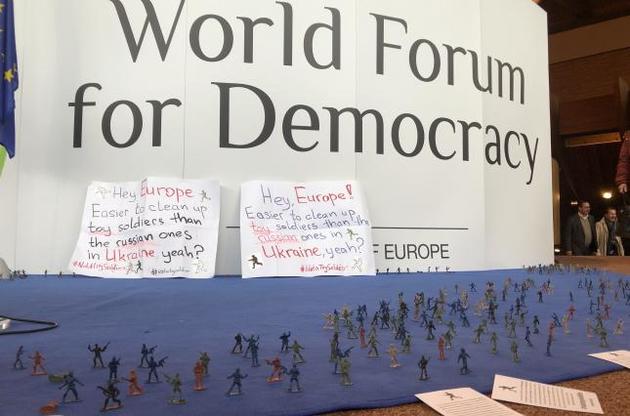 World Forum
for Democracy
Hey Europe
Easier to clean up
toy soldiers than
the russian ones
in Ukraine, yeah?
#NotAToySoldiers
#notatoysoldier
Hey, Europe!
Easier to clean up
toy soldiers than the
russian ones in
Ukraine, yeah?
#NotaToySoldier
OF EUROPE